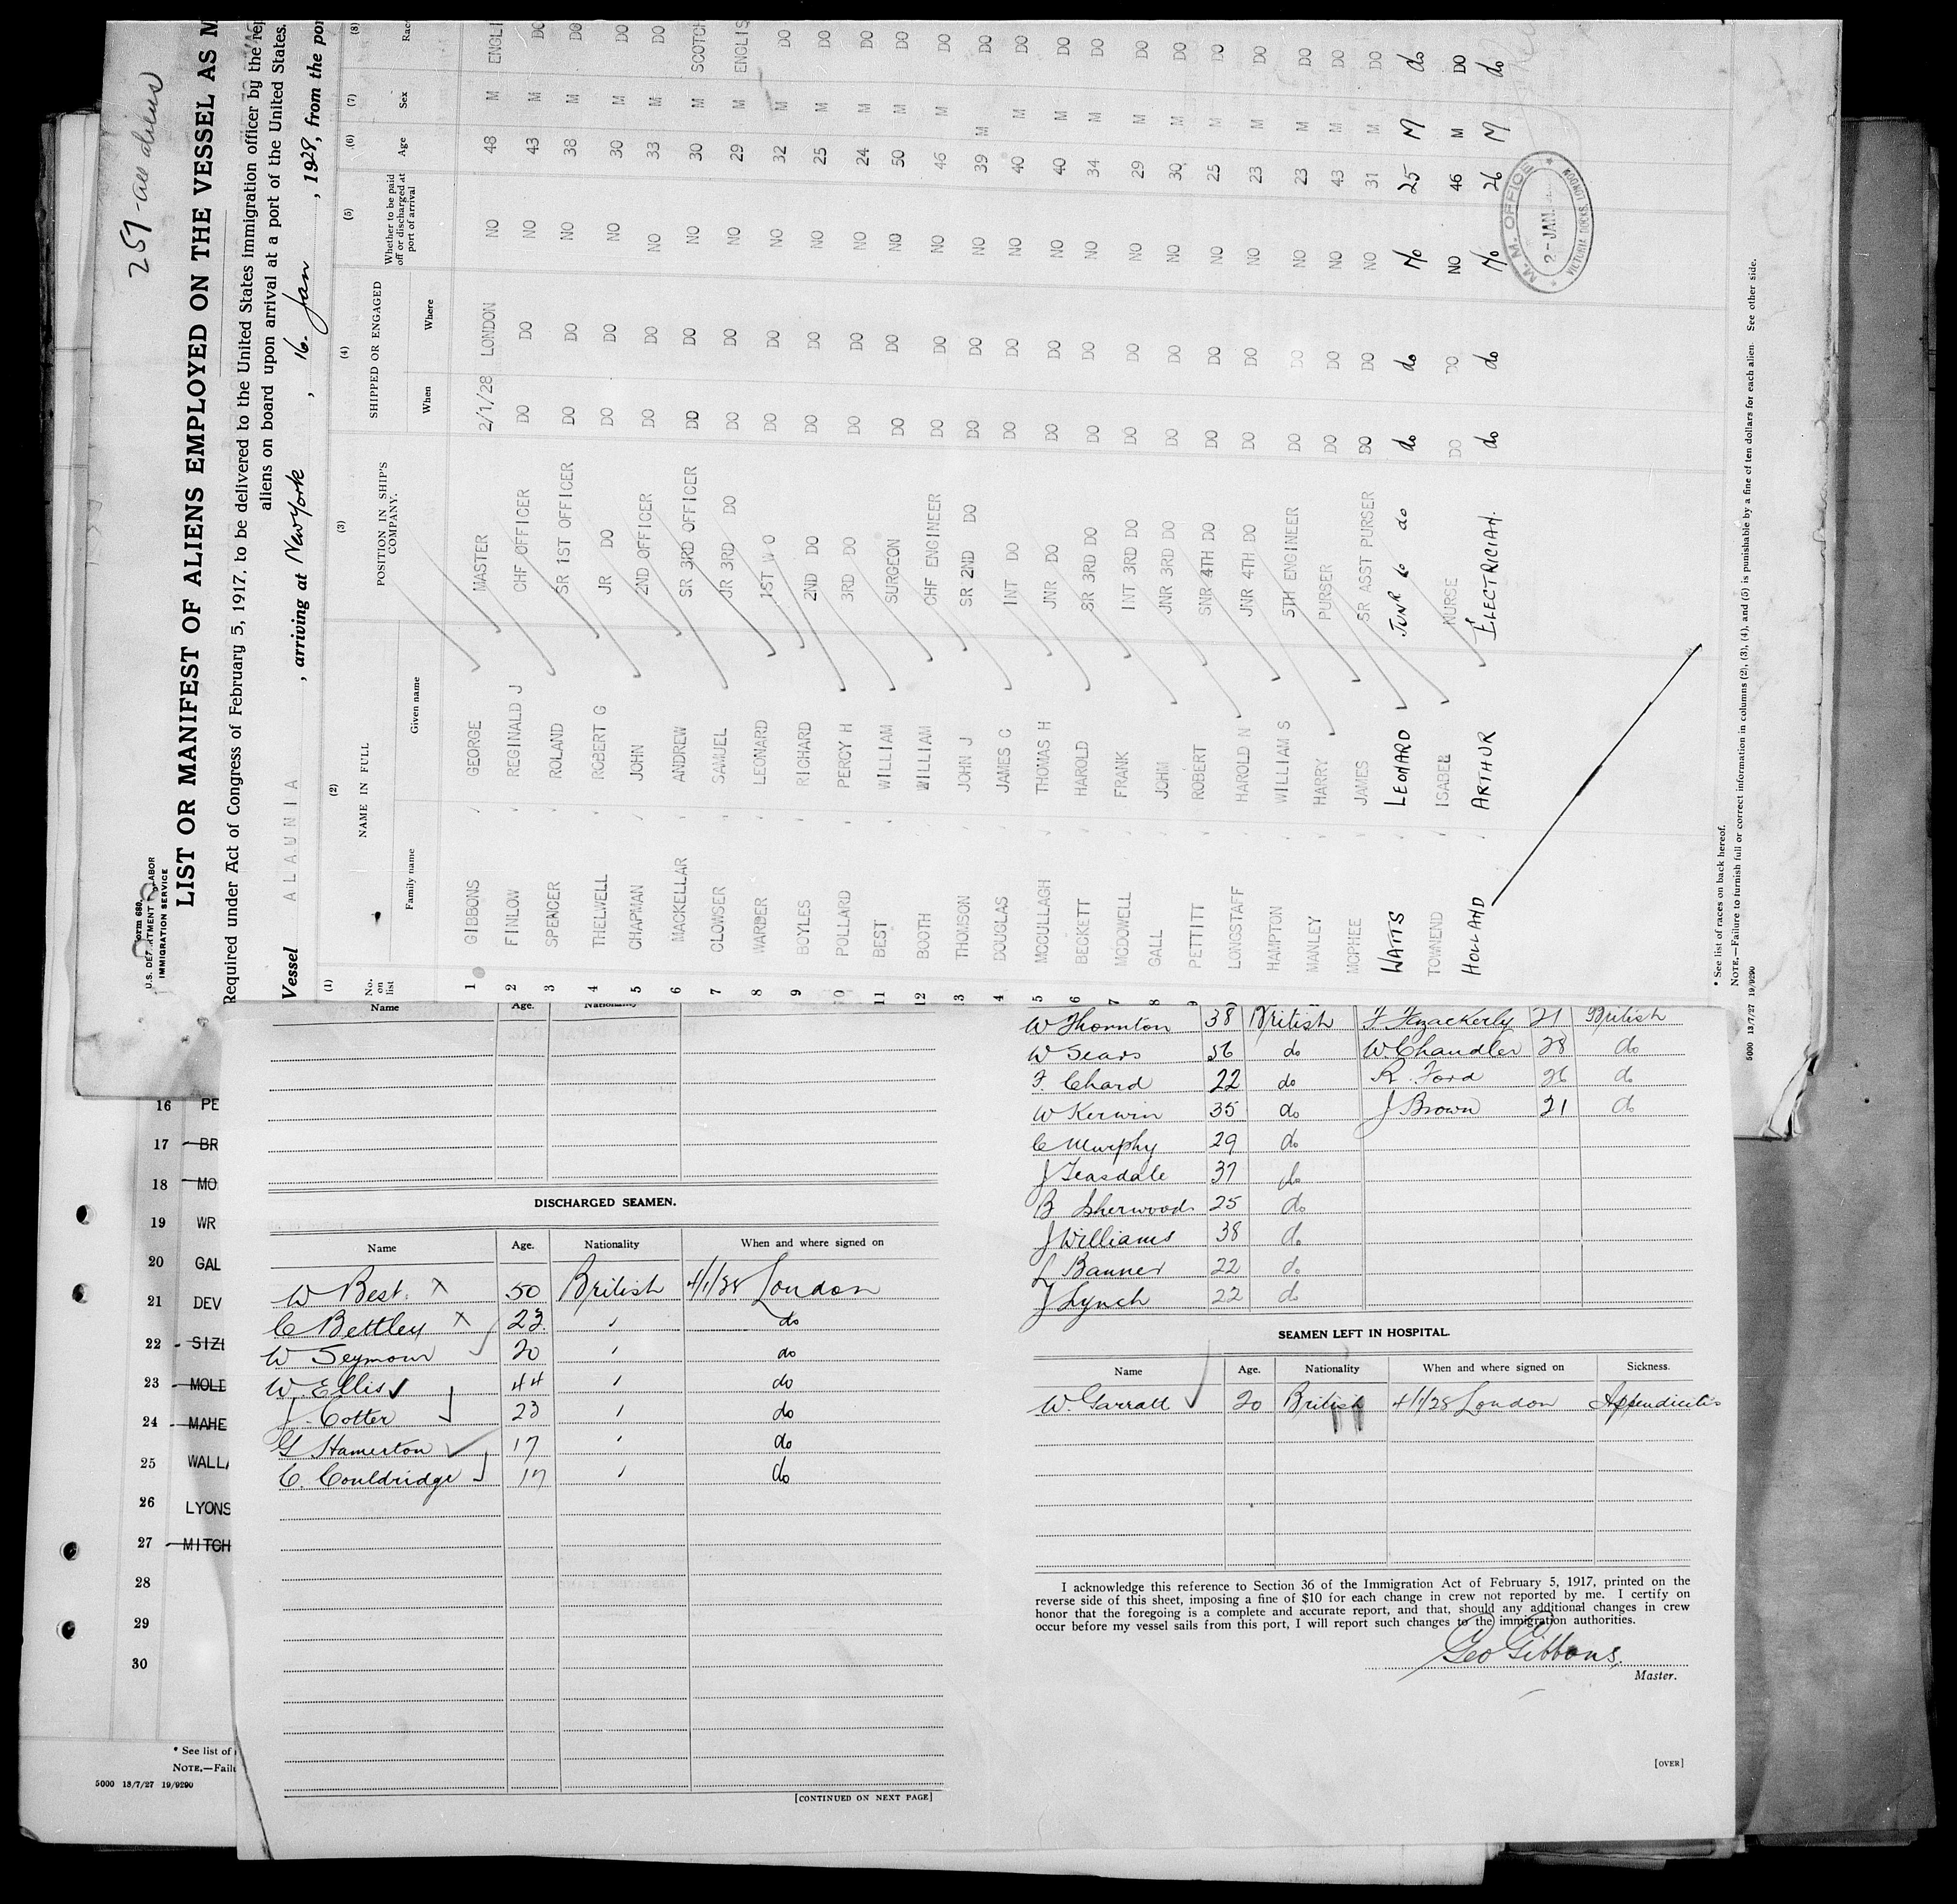 259 - all aliens
Form 680
U.S. DEPARTMENT OF LABOR
IMMIGRATION SERVICE
LIST OR MANIFEST OF ALIENS EMPLOYED ON THE VESSEL AS M
Required under Act of Congress of February 5, 1917, to be delivered to the United States immigration officer by the rep
aliens on board upon arrival at a port of the United States.
Vessel ALAUNIA , arriving at New York , 16. Jan , 1928, from the por
(1) (2) (3) (4) (5) (6) (7) (8)
No. on list NAME IN FULL POSITION IN SHIP'S COMPANY. SHIPPED OR ENGAGED Whether to be paid off or discharged at port of arrival Age Sex Rac
Family name Given name When Where
1 GIBBONS GEORGE MASTER 2/1/28 LONDON NO 48 M ENGLI
2 FINLOW REGINALD J CHF OFFICER DO DO NO 43 M DO
3 SPENCER ROLAND SR 1ST OFFICER DO DO NO 38 M DO
4 THELWELL ROBERT G JR DO DO DO NO 30 M DO
5 CHAPMAN JOHN 2ND OFFICER DO DO NO 33 M DO
6 MACKELLAR ANDREW SR 3RD OFFICER DO DO NO 30 M SCOTCH
7 CLOWSER SAMUEL JR 3RD DO DO DO NO 29 M ENGLIS
8 WARDER LEONARD 1ST W O DO DO NO 32 M DO
9 BOYLES RICHARD 2ND DO DO DO NO 25 M DO
10 POLLARD PERCY H 3RD DO DO DO NO 24 M DO
11 BEST WILLIAM SURGEON DO DO NO 50 M DO
12 BOOTH WILLIAM CHF ENGINEER DO DO NO 46 M DO
13 THOMSON JOHN J SR 2ND DO DO DO NO 39 M DO
4 DOUGLAS JAMES C INT DO DO DO NO 40 M DO
5 MCCULLAGH THOMAS H JNR DO DO DO NO 40 M DO
6 BECKETT HAROLD SR 3RD DO DO DO NO 34 M DO
7 MCDOWELL FRANK INT 3RD DO DO DO NO 29 M DO
8 GALL JOHN JNR 3RD DO DO DO NO 30 M DO
9 PETTITT ROBERT SNR 4TH DO DO DO NO 25 M DO
LONGSTAFF HAROLD N JNR 4TH DO DO DO NO 23 M DO
HAMPTON WILLIAM S 5TH ENGINEER DO DO NO 23 M DO
MANLEY HARRY PURSER DO DO NO 43 M DO
MCPHEE JAMES SR ASST PURSER DO DO NO 31 M DO
WATTS LEONARD JUNR do do do do No 25 M do
TOWNEND ISABEL NURSE DO DO NO 46 M DO
HOLLAND ARTHUR ELECTRICIAN. do do No 26 M do
M. M. OFFICE
2-JAN.
VICTORIA DOCKS, LONDON
* See list of races on back hereof.
NOTE.—Failure to furnish full or correct information in columns (2), (3), (4), and (5) is punishable by a fine of ten dollars for each alien. See other side.
5000 13/7/27 19/9290
16 PE
17 BR
18 MO
19 WR
20 GAL
21 DEV
22 SIZI
23 MOLD
24 MAHE
25 WALL
26 LYONS
27 MITCH
28
29
30
* See list of
NOTE.—Failu
5000 13/7/27 19/9290
Name Age. Nationality
DISCHARGED SEAMEN.
Name Age. Nationality When and where signed on
W Best. 50 British 4/1/28 London
C Bettley 23 " do
W Seymour 20 " do
W. Ellis 44 " do
J. Cotter 23 " do
G Hamerton 17 " do
C. Couldridge 17 " do
[CONTINUED ON NEXT PAGE]
W Thornton 38 British F Fazackerly 21 British
W Sears 56 do W Chandler 28 do
F. Chard 22 do R. Ford 26 do
W Kerwin 35 do J Brown 21 do
C Murphy 29 do
J Teasdale 37 do
B Isherwood 25 do
J Williams 38 do
L Banner 22 do
J Lynch 22 do
SEAMEN LEFT IN HOSPITAL.
Name Age. Nationality When and where signed on Sickness.
W. Garratt 20 British 4/1/28 London Appendicitis
I acknowledge this reference to Section 36 of the Immigration Act of February 5, 1917, printed on the
reverse side of this sheet, imposing a fine of $10 for each change in crew not reported by me. I certify on
honor that the foregoing is a complete and accurate report, and that, should any additional changes in crew
occur before my vessel sails from this port, I will report such changes to the immigration authorities.
Geo Gibbons.
Master.
[OVER]